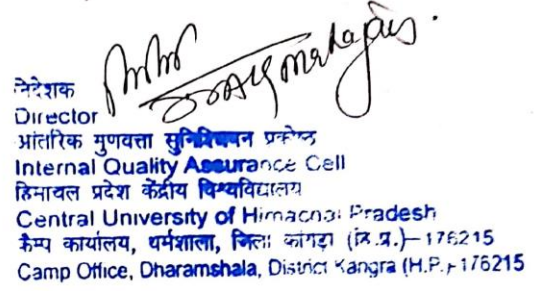 निदेशक
Director
आंतरिक गुणवत्ता सुनिश्चियन प्रकोष्ठ
Internal Quality Assurance Cell
हिमाचल प्रदेश केंद्रीय विश्वविद्यालय
Central University of Himachal Pradesh
कैम्प कार्यालय, धर्मशाला, जिला कांगड़ा (हि.प्र.)–176215
Camp Office, Dharamshala, District Kangra (H.P.)-176215